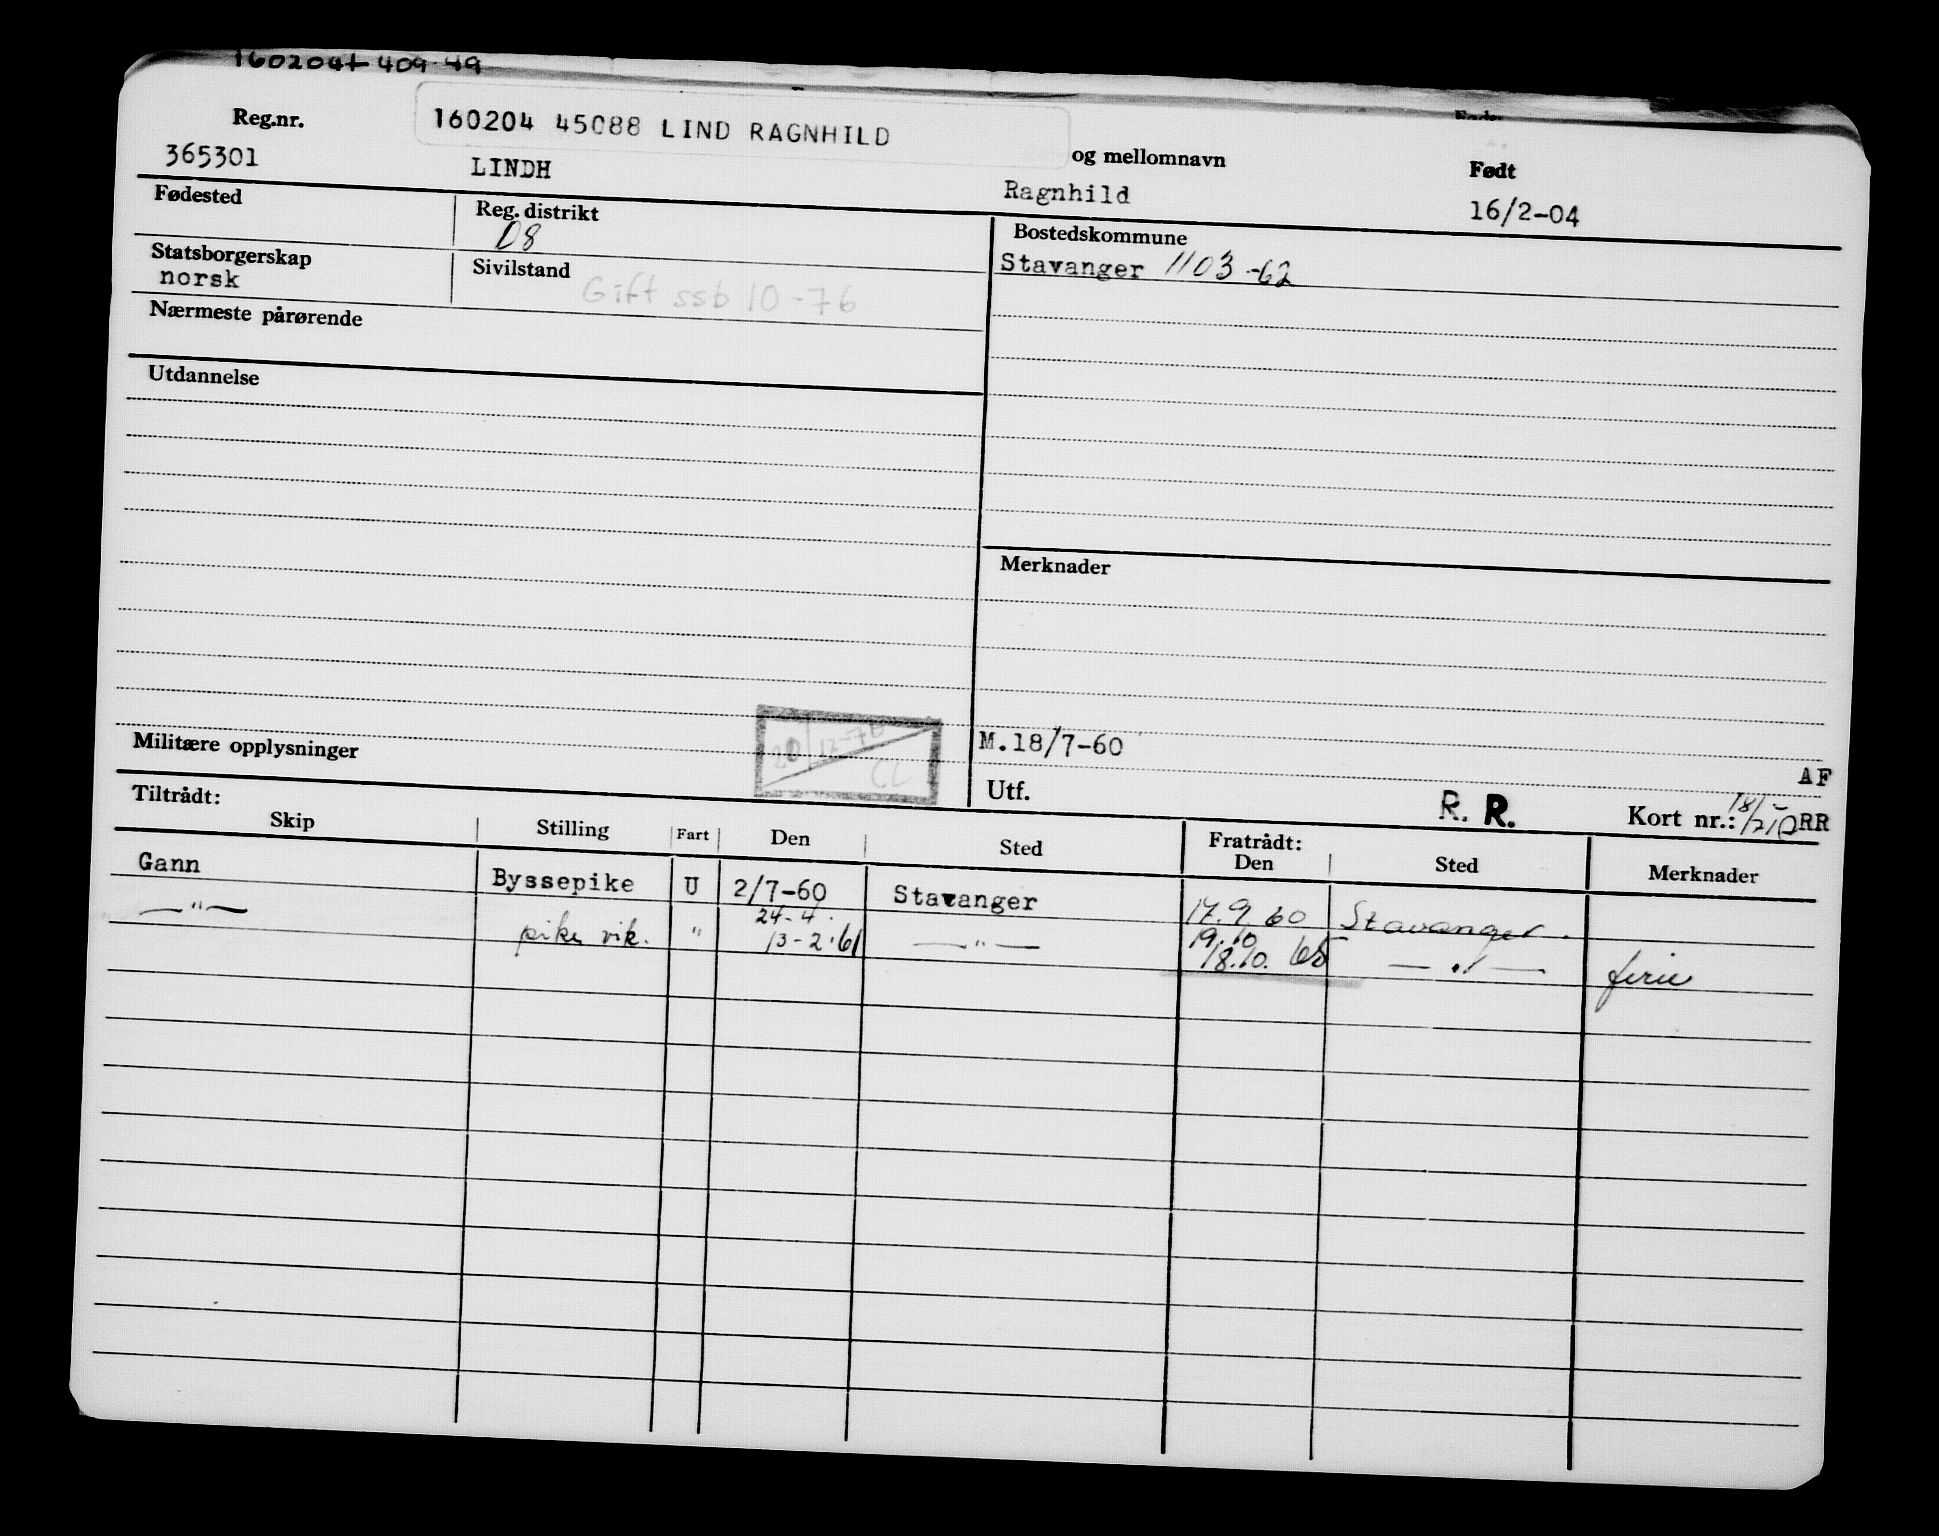 160204 409 49
Reg.nr.
160204 45088 LIND RAGNHILD
og mellomnavn
Født
365301
LINDH
Ragnhild
16/2-04
Fødested
Reg. distrikt
08
Bostedskommune
Stavanger 1103 -62
Statsborgerskap
norsk
Sivilstand
Gift ssb 10-76
Nærmeste pårørende
Utdannelse
Merknader
Militære opplysninger
20/12-76
CL
M.18/7-60
AF
Utf.
R. R.
Kort nr.:
RR
Tiltrådt:
Skip
Stilling
Fart
Den
Sted
Fratrådt:
Den
Sted
Merknader
Gann
Byssepike
U
2/7-60
Stavanger
17.9.60
Stavanger.
—"—
pike vik.
"
24-4.
13-2.61
—"—
19.10
18.10. 65
—"—
ferie